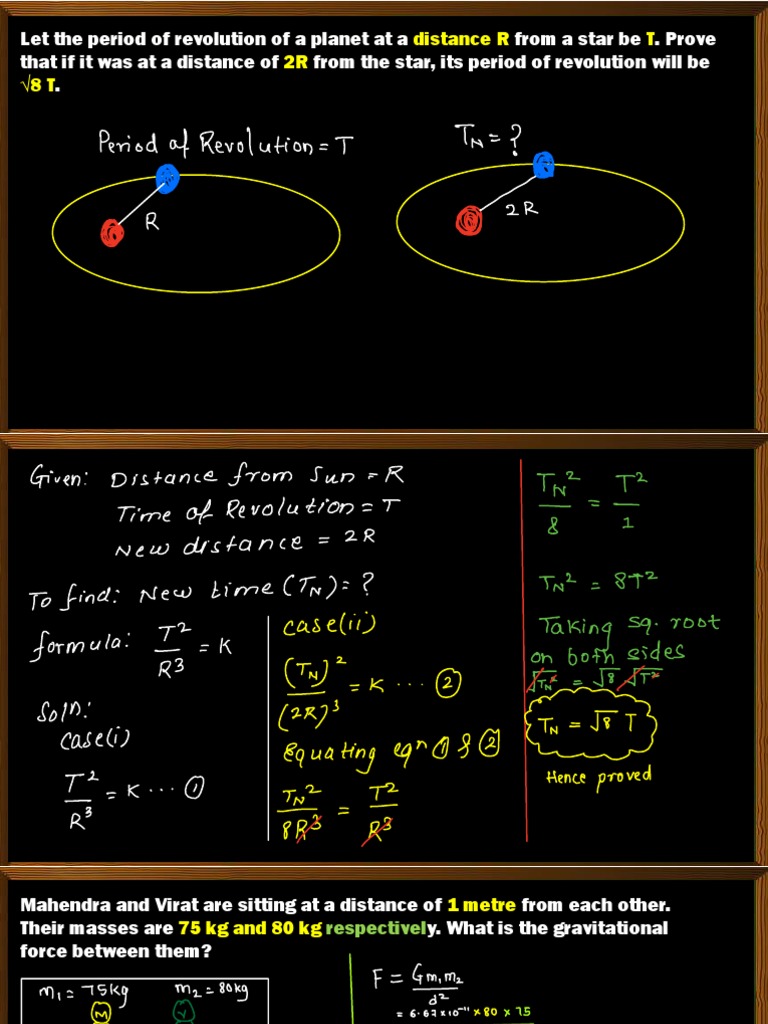 Let the period of revolution of a planet at a distance R from a star be T. Prove
that if it was at a distance of 2R from the star, its period of revolution will be
√8 T.
Period of Revolution = T
R
T_N = ?
2R
Given: Distance from Sun = R
Time of Revolution = T
New distance = 2R
To find: New time (T_N) = ?
formula: T²/R³ = K
Soln:
case(i)
T²/R³ = K ... ①
case(ii)
(T_N)²/(2R)³ = K ... ②
Equating eqⁿ ① & ②
T_N²/8R³ = T²/R³
T_N²/8 = T²/1
T_N² = 8T²
Taking sq. root
on both sides
√T_N² = √8 √T²
T_N = √8 T
Hence proved
Mahendra and Virat are sitting at a distance of 1 metre from each other.
Their masses are 75 kg and 80 kg respectively. What is the gravitational
force between them?
m₁ = 75kg m₂ = 80kg
M V
F = Gm₁m₂/d²
= 6.67×10⁻¹¹ × 80 × 75